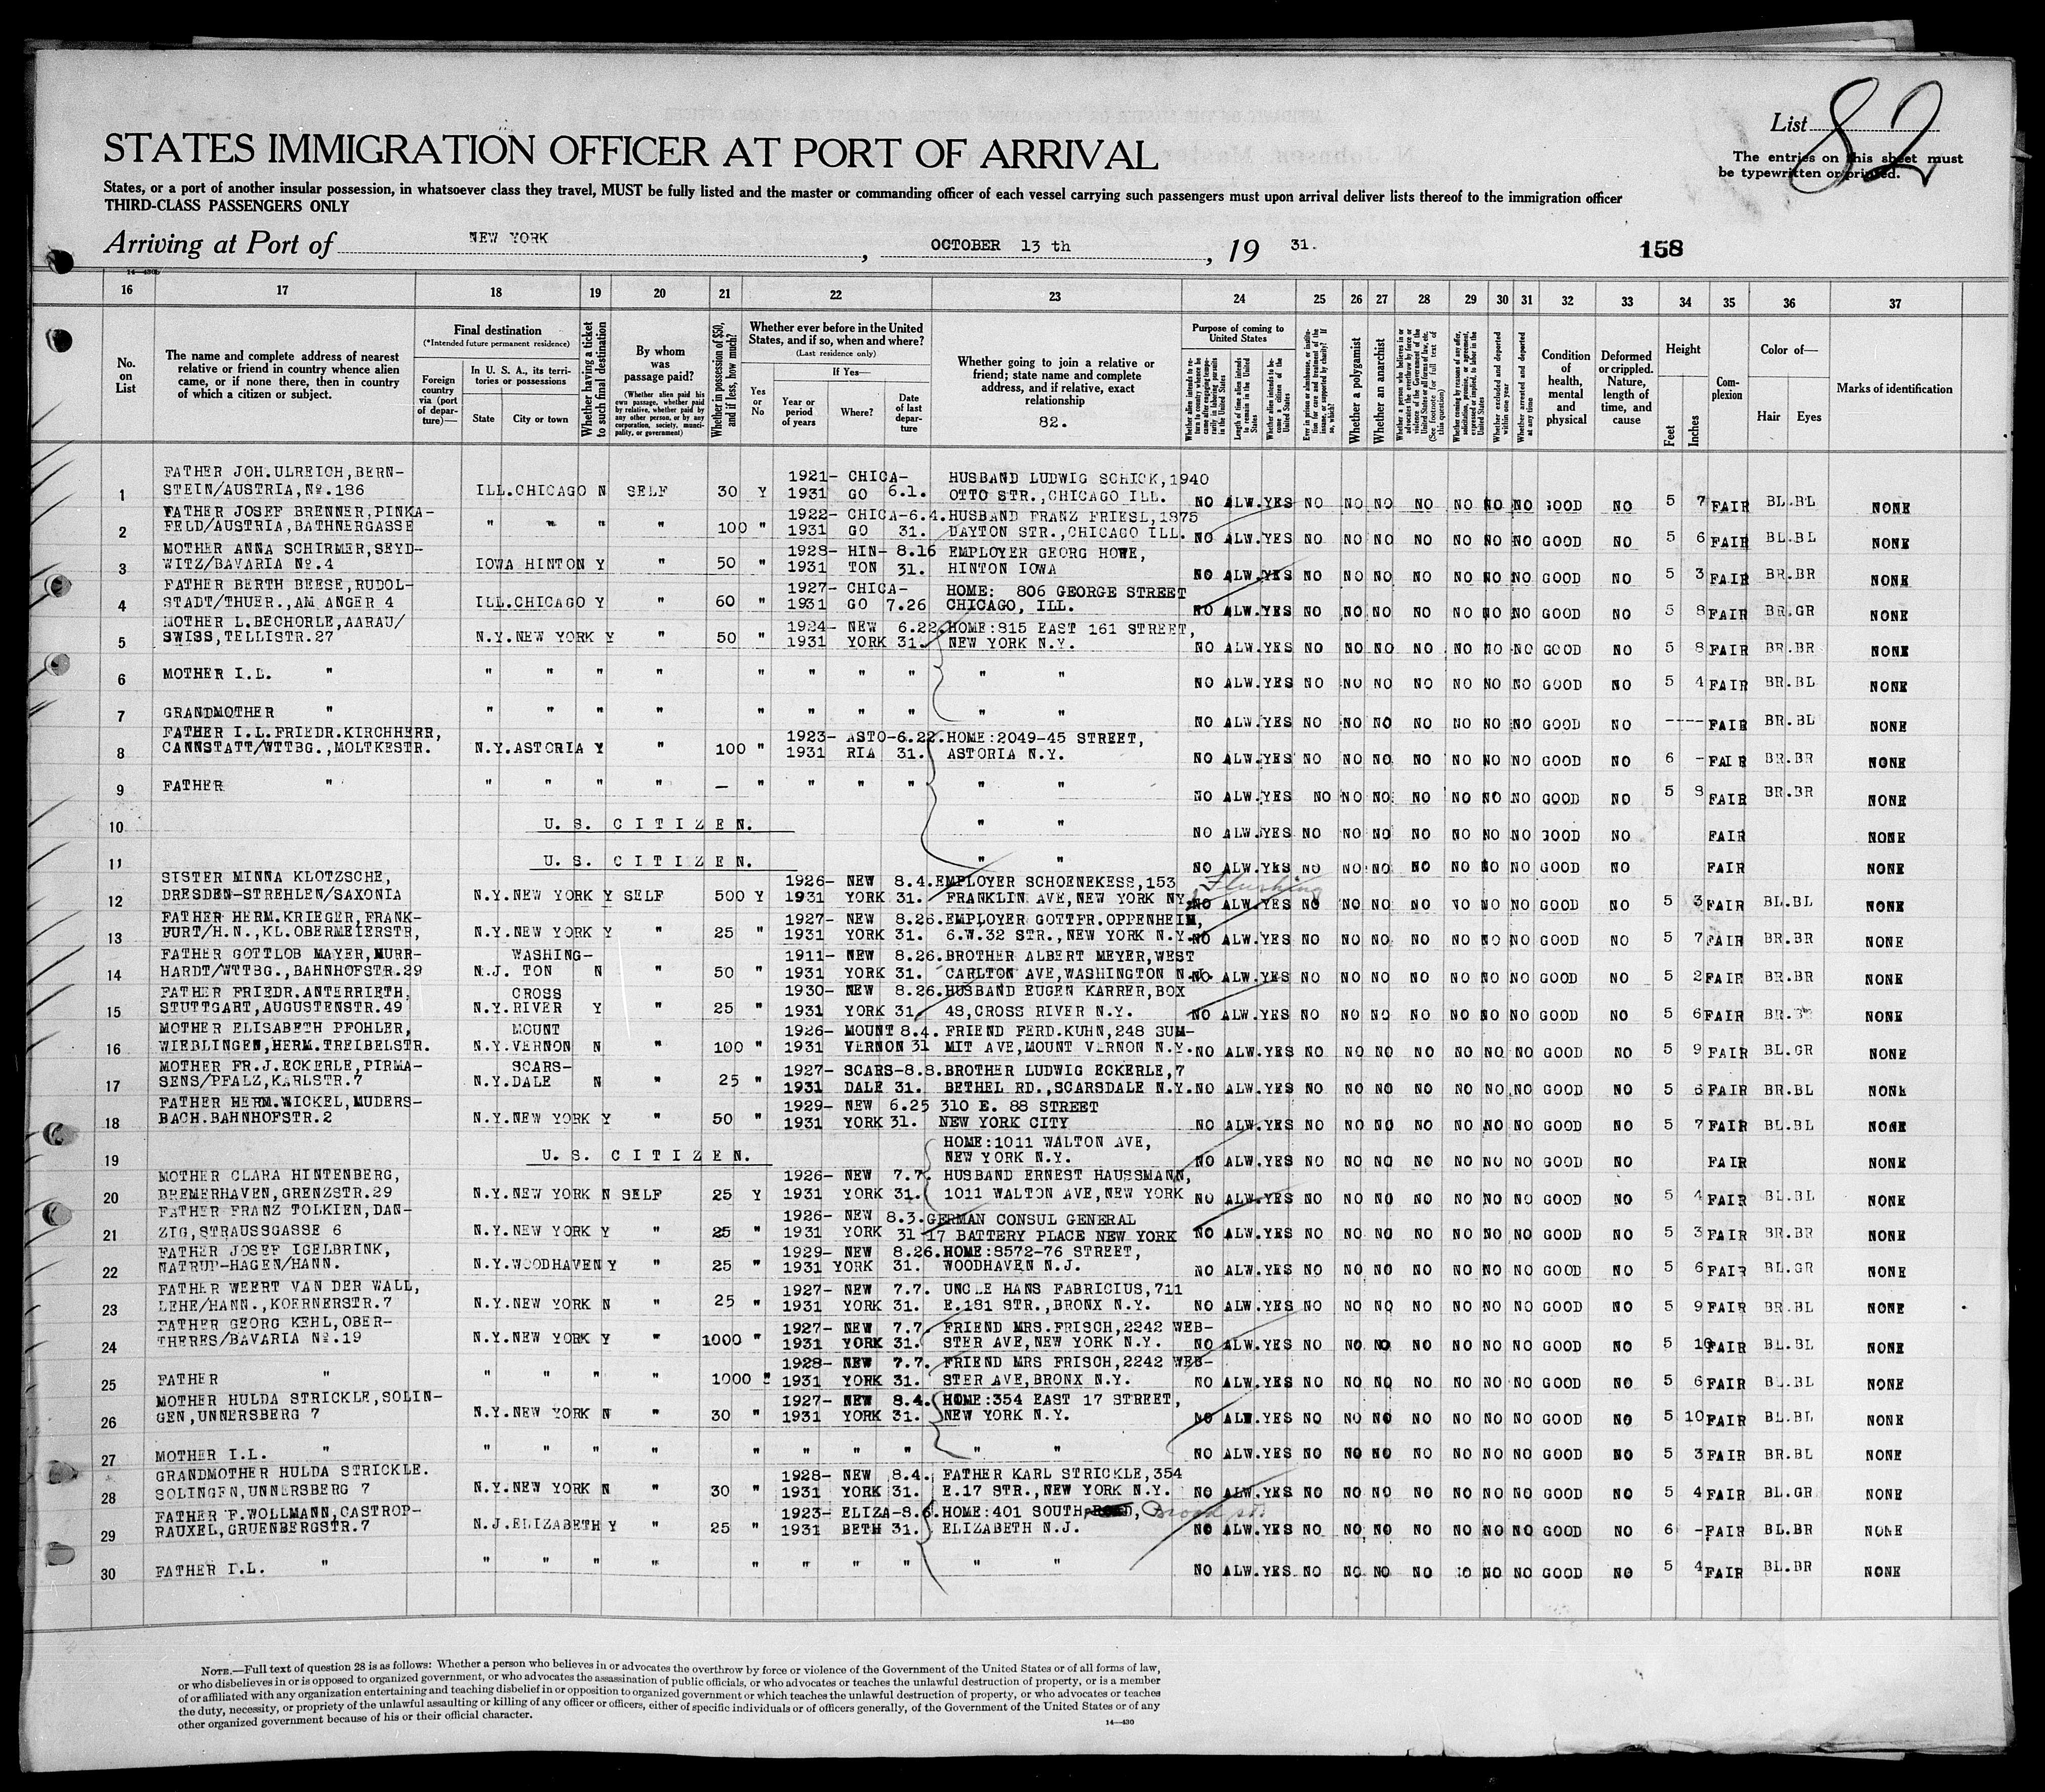 List 82
The entries on this sheet must
be typewritten or printed.
STATES IMMIGRATION OFFICER AT PORT OF ARRIVAL
States, or a port of another insular possession, in whatsoever class they travel, MUST be fully listed and the master or commanding officer of each vessel carrying such passengers must upon arrival deliver lists thereof to the immigration officer
THIRD-CLASS PASSENGERS ONLY
Arriving at Port of NEW YORK, OCTOBER 13 th, 19 31. 158
16 17 18 19 20 21 22 23 24 25 26 27 28 29 30 31 32 33 34 35 36 37
No. on List
The name and complete address of nearest relative or friend in country whence alien came, or if none there, then in country of which a citizen or subject.
Final destination
(*Intended future permanent residence)
Foreign country via (port of departure)—
In U. S. A., its territories or possessions
State City or town
Whether having a ticket to such final destination
By whom was passage paid?
(Whether alien paid his own passage, whether paid by relative, whether paid by any other person, or by any corporation, society, municipality, or government)
Whether in possession of $50, and if less, how much?
Whether ever before in the United States, and if so, when and where?
(Last residence only)
Yes or No
If Yes—
Year or period of years Where? Date of last departure
Whether going to join a relative or friend; state name and complete address, and if relative, exact relationship
82.
Purpose of coming to United States
Length of time alien intends to remain in the United States
Whether alien intends to become a citizen of the United States
Whether a polygamist
Whether an anarchist
Whether excluded and deported within one year
Whether arrested and deported at any time
Condition of health, mental and physical
Deformed or crippled. Nature, length of time, and cause
Height
Feet Inches
Complexion
Color of—
Hair Eyes
Marks of identification
FATHER JOH.ULREICH,BERN- 1921- CHICA- HUSBAND LUDWIG SCHICK,1940
1 STEIN/AUSTRIA,No.186 ILL.CHICAGO N SELF 30 Y 1931 GO 6.1. OTTO STR.,CHICAGO ILL. NO ALW.YES NO NO NO NO NO NO NO GOOD NO 5 7 FAIR BL.BL NONE
FATHER JOSEF BRENNER,PINKA- 1922- CHICA-6.4. HUSBAND FRANZ FRIESL,1875
2 FELD/AUSTRIA,BATHNERGASSE " " " " 100 " 1931 GO 31. DAYTON STR.,CHICAGO ILL. NO ALW.YES NO NO NO NO NO NO NO GOOD NO 5 6 FAIR BL.BL NONE
MOTHER ANNA SCHIRMER,SEYD- 1928- HIN- 8.16 EMPLOYER GEORG HOWE,
3 WITZ/BAVARIA No.4 IOWA HINTON Y " 50 " 1931 TON 31. HINTON IOWA NO ALW.YES NO NO NO NO NO NO NO GOOD NO 5 3 FAIR BR.BR NONE
FATHER BERTH BEESE,RUDOL- 1927- CHICA- HOME: 806 GEORGE STREET
4 STADT/THUER.,AM ANGER 4 ILL.CHICAGO Y " 60 " 1931 GO 7.26 CHICAGO, ILL. NO ALW.YES NO NO NO NO NO NO NO GOOD NO 5 8 FAIR BR.GR NONE
MOTHER L.BECHORLE,AARAU/ 1924- NEW 6.22. HOME:815 EAST 161 STREET,
5 SWISS,TELLISTR.27 N.Y.NEW YORK Y " 50 " 1931 YORK 31. NEW YORK N.Y. NO ALW.YES NO NO NO NO NO NO NO GOOD NO 5 8 FAIR BR.BR NONE
6 MOTHER I.L. " " " " " " " " " " " NO ALW.YES NO NO NO NO NO NO NO GOOD NO 5 4 FAIR BR.BL NONE
7 GRANDMOTHER " " " " " " " " " " " NO ALW.YES NO NO NO NO NO NO NO GOOD NO ---- FAIR BR.BL NONE
FATHER I.L.FRIEDR.KIRCHHERR, 1923- ASTO-6.22. HOME:2049-45 STREET,
8 CANNSTATT/WTTBG.,MOLTKESTR. N.Y.ASTORIA Y " 100 " 1931 RIA 31. ASTORIA N.Y. NO ALW.YES NO NO NO NO NO NO NO GOOD NO 6 - FAIR BR.BR NONE
9 FATHER " " " " " — " " " " " " NO ALW.YES NO NO NO NO NO NO NO GOOD NO 5 8 FAIR BR.BR NONE
10 U. S. C I T I Z E N. " " NO ALW.YES NO NO NO NO NO NO NO GOOD NO FAIR NONE
11 U. S. C I T I Z E N. " " NO ALW.YES NO NO NO NO NO NO NO GOOD NO FAIR NONE
SISTER MINNA KLOTZSCHE, 1926- NEW 8.4. EMPLOYER SCHOENEKESS,153 Flushing
12 DRESDEN-STREHLEN/SAXONIA N.Y.NEW YORK Y SELF 500 Y 1931 YORK 31. FRANKLIN AVE,NEW YORK NY. NO ALW.YES NO NO NO NO NO NO NO GOOD NO 5 3 FAIR BL.BL NONE
FATHER HERM.KRIEGER,FRANK- 1927- NEW 8.26. EMPLOYER GOTTFR.OPPENHEIM,
13 FURT/H.N.,KL.OBERMEIERSTR, N.Y.NEW YORK Y " 25 " 1931 YORK 31. 6.W.32 STR.,NEW YORK N.Y. NO ALW.YES NO NO NO NO NO NO NO GOOD NO 5 7 FAIR BR.BR NONE
FATHER GOTTLOB MAYER,MURR- WASHING- 1911- NEW 8.26. BROTHER ALBERT MEYER,WEST
14 HARDT/WTTBG.,BAHNHOFSTR.29 N.J. TON N " 50 " 1931 YORK 31. CARLTON AVE,WASHINGTON N.J. NO ALW.YES NO NO NO NO NO NO NO GOOD NO 5 2 FAIR BR.BR NONE
FATHER FRIEDR.ANTERRIETH, CROSS 1930- NEW 8.26. HUSBAND EUGEN KARRER,BOX
15 STUTTGART,AUGUSTENSTR.49 N.Y.RIVER Y " 25 " 1931 YORK 31. 48,CROSS RIVER N.Y. NO ALW.YES NO NO NO NO NO NO NO GOOD NO 5 6 FAIR BR. NONE
MOTHER ELISABETH PFOHLER, MOUNT 1926- MOUNT 8.4. FRIEND FERD.KUHN,248 SUM-
16 WIEBLINGEN,HERM.TREIBELSTR. N.Y.VERNON N " 100 " 1931 VERNON 31 MIT AVE,MOUNT VERNON N.Y. NO ALW.YES NO NO NO NO NO NO NO GOOD NO 5 9 FAIR BL.GR NONE
MOTHER FR.J.ECKERLE,PIRMA- SCARS- 1927- SCARS-8.8. BROTHER LUDWIG ECKERLE,7
17 SENS/PFALZ,KARLSTR.7 N.Y.DALE N " 25 " 1931 DALE 31. BETHEL RD.,SCARSDALE N.Y. NO ALW.YES NO NO NO NO NO NO NO GOOD NO 5 6 FAIR BR.BL NONE
FATHER HERM.WICKEL,MUDERS- 1929- NEW 6.25 310 E. 88 STREET
18 BACH.BAHNHOFSTR.2 N.Y.NEW YORK Y " 50 " 1931 YORK 31. NEW YORK CITY NO ALW.YES NO NO NO NO NO NO NO GOOD NO 5 7 FAIR BL.BL NONE
HOME:1011 WALTON AVE,
19 U. S. C I T I Z E N. NEW YORK N.Y. NO ALW.YES NO NO NO NO NO NO NO GOOD NO FAIR NONE
MOTHER CLARA HINTENBERG, 1926- NEW 7.7. HUSBAND ERNEST HAUSSMANN,
20 BREMERHAVEN,GRENZSTR.29 N.Y.NEW YORK N SELF 25 Y 1931 YORK 31. 1011 WALTON AVE,NEW YORK NO ALW.YES NO NO NO NO NO NO NO GOOD NO 5 4 FAIR BL.BL NONE
FATHER FRANZ TOLKIEN,DAN- 1926- NEW 8.3. GERMAN CONSUL GENERAL
21 ZIG,STRAUSSGASSE 6 N.Y.NEW YORK Y " 25 " 1931 YORK 31 17 BATTERY PLACE NEW YORK NO ALW.YES NO NO NO NO NO NO NO GOOD NO 5 3 FAIR BR.BR NONE
FATHER JOSEF IGELBRINK, 1929- NEW 8.26. HOME:8572-76 STREET,
22 NATRUP-HAGEN/HANN. N.Y.WOODHAVEN Y " 25 " 1931 YORK 31. WOODHAVEN N.J. NO ALW.YES NO NO NO NO NO NO NO GOOD NO 5 6 FAIR BL.GR NONE
FATHER WEERT VAN DER WALL, 1927- NEW 7.7. UNCLE HANS FABRICIUS,711
23 LEHE/HANN.,KOERNERSTR.7 N.Y.NEW YORK N " 25 " 1931 YORK 31. E.181 STR.,BRONX N.Y. NO ALW.YES NO NO NO NO NO NO NO GOOD NO 5 9 FAIR BR.BL NONE
FATHER GEORG KEHL,OBER- 1927- NEW 7.7. FRIEND MRS.FRISCH,2242 WEB-
24 THERES/BAVARIA No.19 N.Y.NEW YORK Y " 1000 " 1931 YORK 31. STER AVE,NEW YORK N.Y. NO ALW.YES NO NO NO NO NO NO NO GOOD NO 5 10 FAIR BL.BL NONE
1928- NEW 7.7. FRIEND MRS FRISCH,2242 WEB-
25 FATHER " " " " " 1000 " 1931 YORK 31. STER AVE,BRONX N.Y. NO ALW.YES NO NO NO NO NO NO NO GOOD NO 5 6 FAIR BL.BL NONE
MOTHER HULDA STRICKLE,SOLIN- 1927- NEW 8.4. HOME:354 EAST 17 STREET,
26 GEN,UNNERSBERG 7 N.Y.NEW YORK N " 30 " 1931 YORK 31. NEW YORK N.Y. NO ALW.YES NO NO NO NO NO NO NO GOOD NO 5 10 FAIR BL.BL NONE
27 MOTHER I.L. " " " " " " " " " " " NO ALW.YES NO NO NO NO NO NO NO GOOD NO 5 3 FAIR BR.BL NONE
GRANDMOTHER HULDA STRICKLE. 1928- NEW 8.4. FATHER KARL STRICKLE,354
28 SOLINGEN,UNNERSBERG 7 N.Y.NEW YORK N " 30 " 1931 YORK 31. E.17 STR.,NEW YORK N.Y. NO ALW.YES NO NO NO NO NO NO NO GOOD NO 5 4 FAIR BL.GR NONE
FATHER F.WOLLMANN,CASTROP- 1923- ELIZA-8.6. HOME:401 SOUTH Broad St.
29 RAUXEL,GRUENBERGSTR.7 N.J.ELIZABETH Y " 25 " 1931 BETH 31. ELIZABETH N.J. NO ALW.YES NO NO NO NO NO NO NO GOOD NO 6 - FAIR BL.BR NONE
30 FATHER I.L. " " " " " " " " " " " NO ALW.YES NO NO NO NO NO NO NO GOOD NO 5 4 FAIR BL.BR NONE
NOTE.—Full text of question 28 is as follows: Whether a person who believes in or advocates the overthrow by force or violence of the Government of the United States or of all forms of law,
or who disbelieves in or is opposed to organized government, or who advocates the assassination of public officials, or who advocates or teaches the unlawful destruction of property, or is a member
of or affiliated with any organization entertaining and teaching disbelief in or opposition to organized government or which teaches the unlawful destruction of property, or who advocates or teaches
the duty, necessity, or propriety of the unlawful assaulting or killing of any officer or officers, either of specific individuals or of officers generally, of the Government of the United States or of any
other organized government because of his or their official character.
14—430